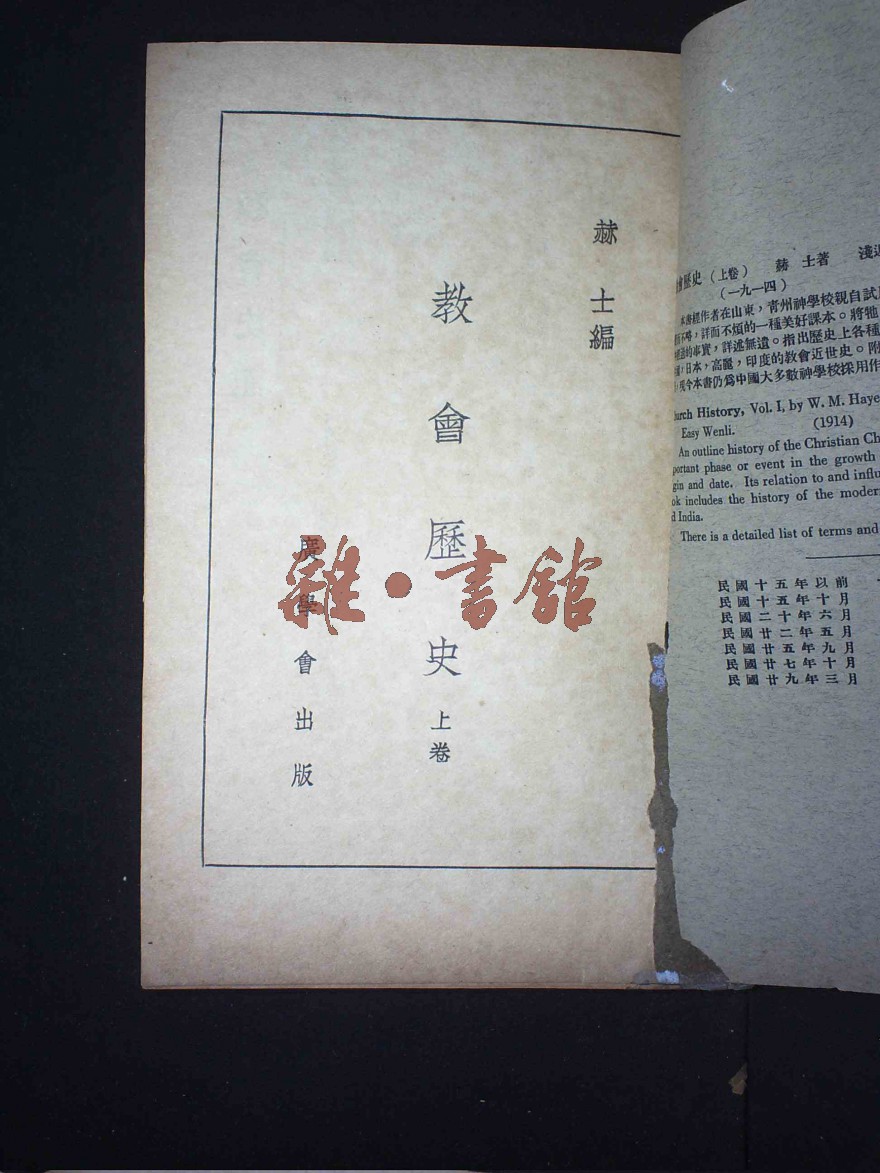 赫士編
教會歷史上卷
廣學會出版
雜·書館
會歷史（上卷） 赫士著 淺
（一九一四）
本書經作者在山東，青州神學校親自試
不略，詳而不煩的一種美好課本。將牠
的事實，詳述無遺。指出歷史上各種
，日本，高麗，印度的教會近世史。附
現今本書仍爲中國大多數神學校採用作
urch History, Vol. I, by W. M. Haye
Easy Wenli. (1914)
An outline history of the Christian Ch
portant phase or event in the growth
gin and date. Its relation to and influ
ok includes the history of the moder
d India.
There is a detailed list of terms and
民國十五年以前
民國十五年十月
民國二十年六月
民國廿二年五月
民國廿五年九月
民國廿七年十月
民國廿九年三月